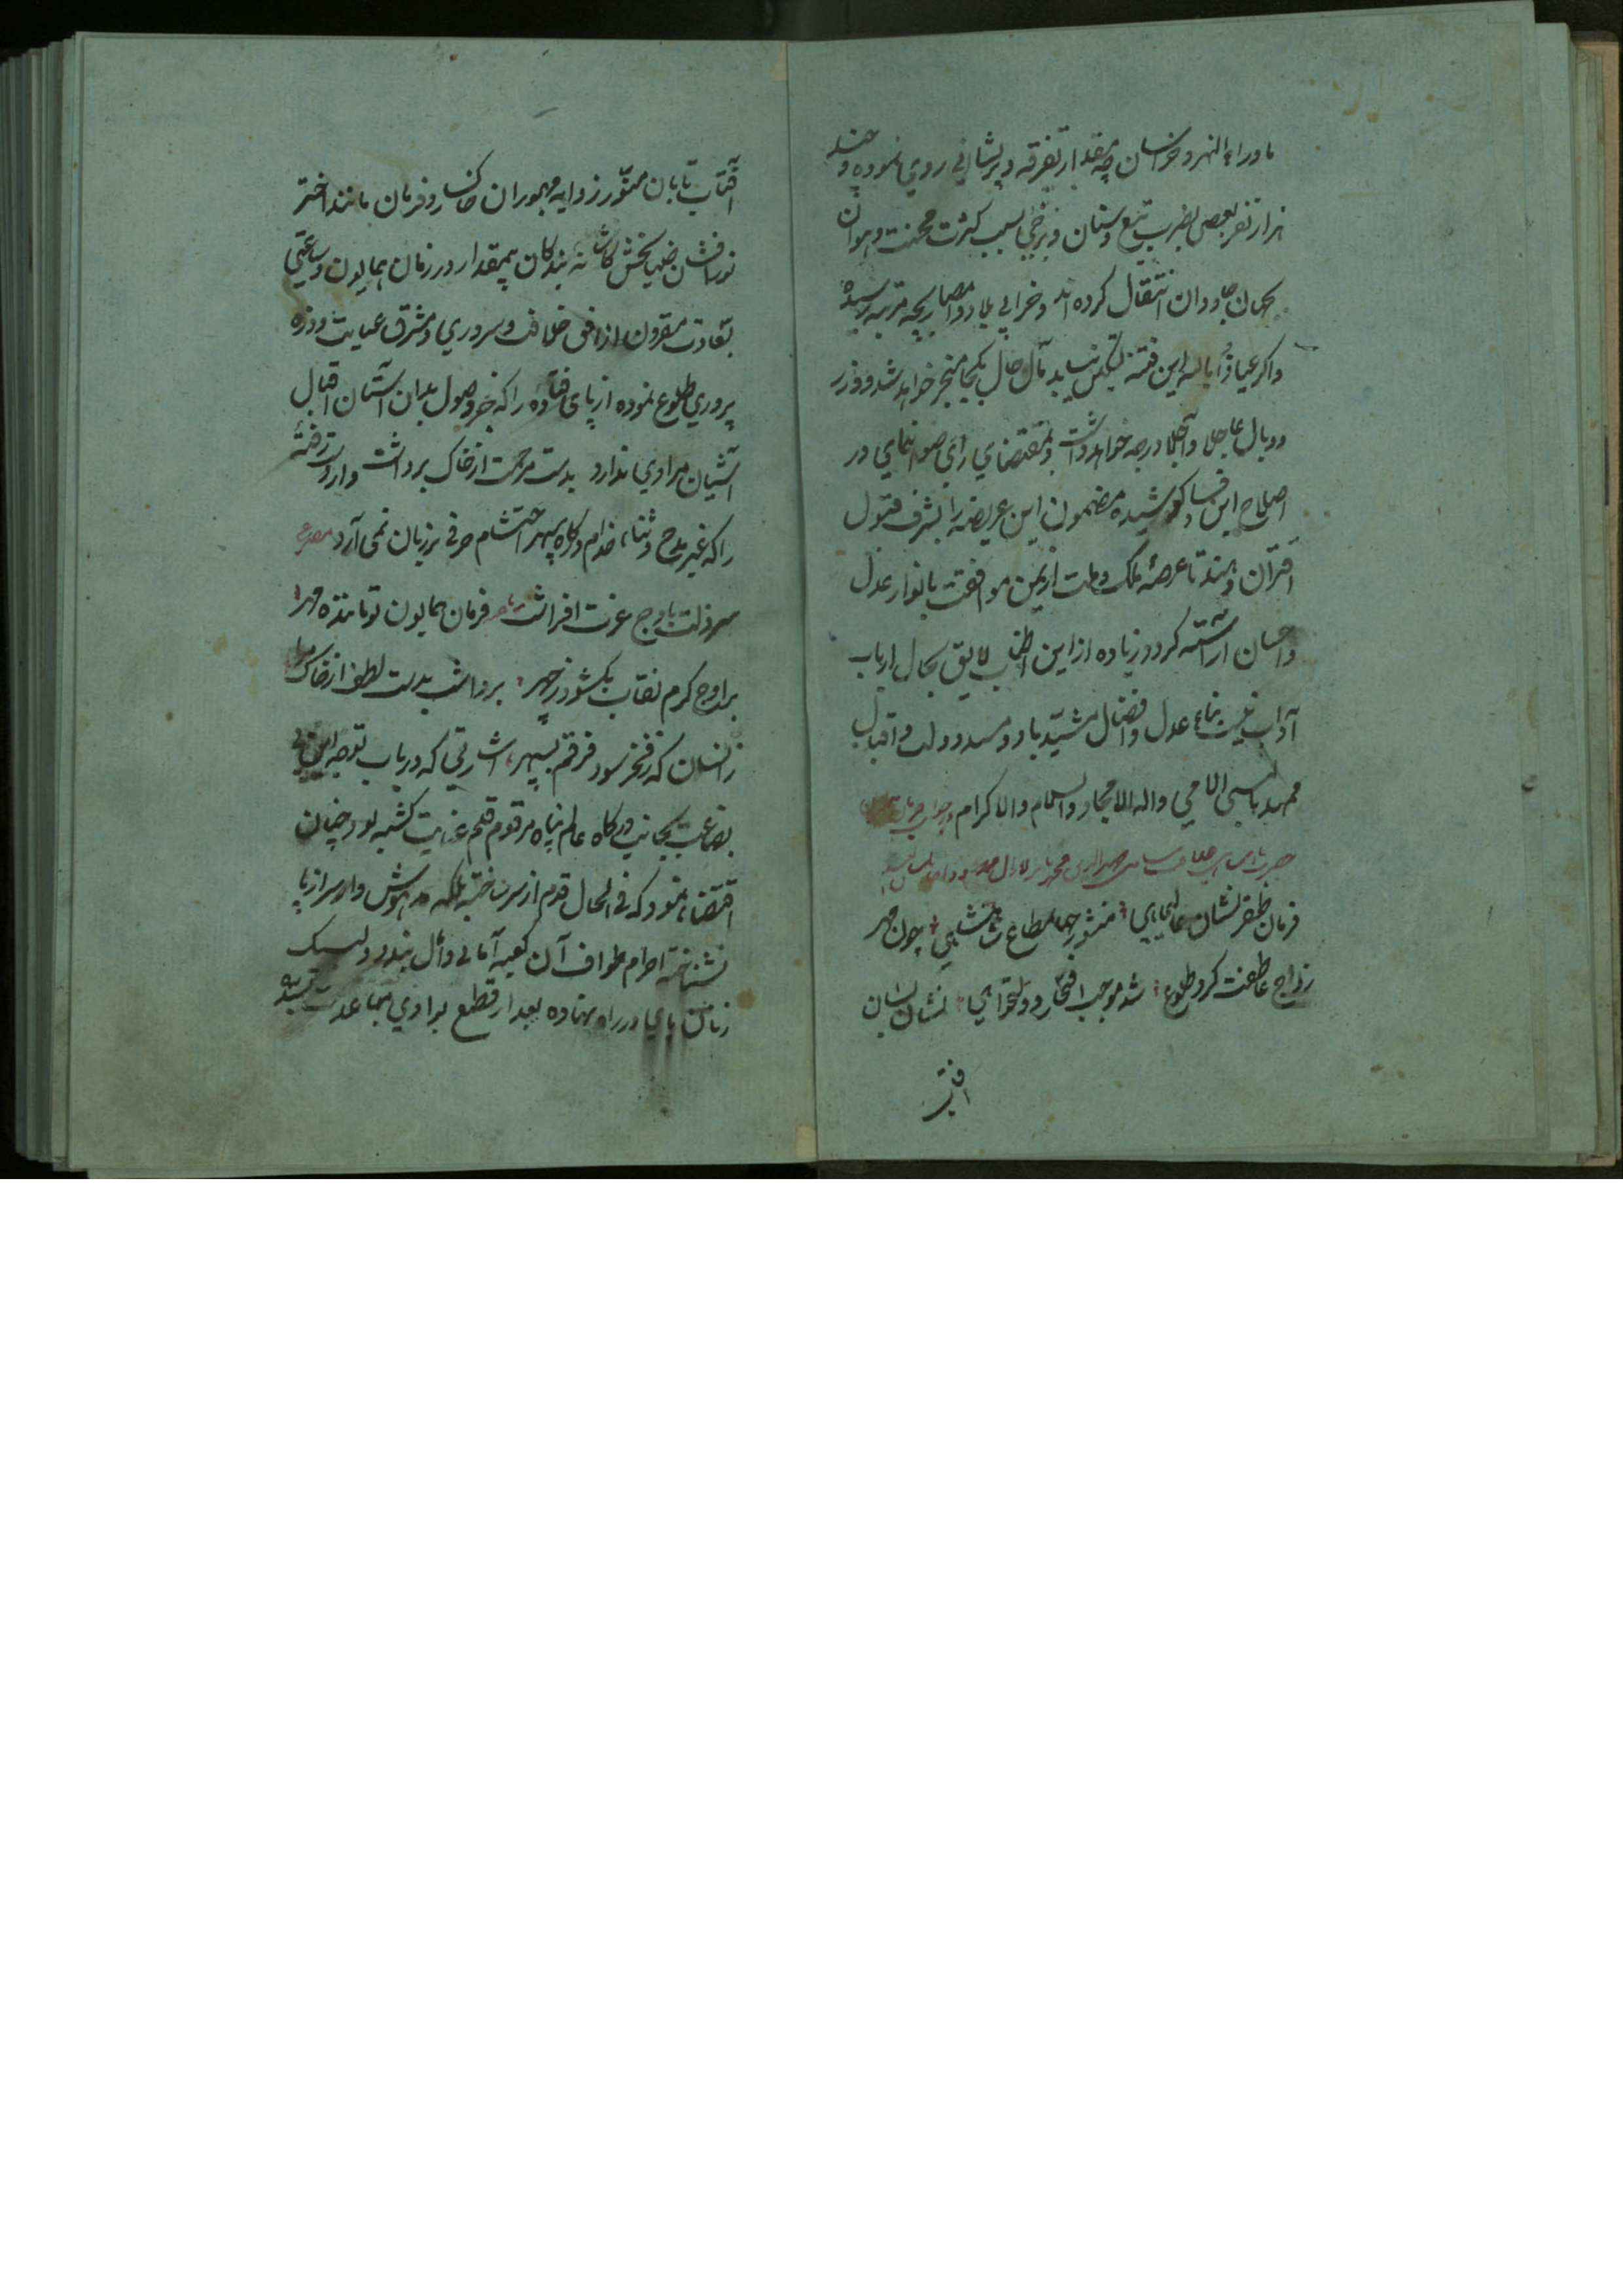 ماوراء النهر و خراسان چه مقدار تفرقه و پریشانی روی نموده و چند
هزار نفر بعضی بضرب تیغ و سنان و برخی بسبب کثرت محنت و هوان
بجهان جاودان انتقال کرده اند و خرابی بلاد و امصار بچه مرتبه رسیده
و اکر عیاذا بالله این فتنه تسکین نیابد مآل حال بکجا منجر خواهد شد و وزر
و وبال عاجلا و آجلا درجه خواهد داشت و بمقتضای رای صواب نمای در
اصلاح این فساد کوشیده مضمون این عریضه را بشرف قبول
اقتران دهند تا عرصۀ ملک و ملت از یمن موافقت بانوار عدل
و احسان آراسته کردد و زیاده از این اطناب لایق بحال ارباب
آداب نیست بناء عدل و افضال مشید باد و مسند دولت و اقبال
ممهد بالنبی الامی و اله الامجاد والسلام والاکرام
فرمان ظفر نشان عالیجاهی منشور جهانمطاع شاهنشاهی چون مهر
ز اوج عاطفت کرد طلوع شد موجب افتخار و دولتخواهی نشان لسان
آفتاب تابان منور زوایه مهجوران خاکسار و فرمان مانند اختر
نورافشان ضیابخش کاشانه بندکان بیمقدار در زمان همایون و ساعتی
بسعادت مقرون از افق خلافت و سروری و مشرق عنایت و ذره
پروری طلوع نموده از پای فتاده را که جز وصول بدان آستان اقبال
آشیان مرادی ندارد بدست مرحمت از خاک برداشت و از دست رفتۀ
را که غیر مدح و ثناء خدام درکاه سپهر احتشام حرفی بر زبان نمی آرد مصرع
سر ذلت باوج عزت افراشت فرمان همایون تو مانندۀ مهر
بر اوج کرم نقاب بکشود ز چهر برداشت بدست لطف از خاک مرا
زانسان که ز فخر سود فرقم بسپهر اشارتی که در باب توجه این
بضاعت بجانب درکاه عالم پناه مرقوم قلم عنایت کشته بود چنان
اقتضاء نمود که فی الحال قدم از سر ساخته بلکه مدهوش وار سر از پا
نشناخته احرام طواف آن کعبه آمانی و آمال بندد و لبیک
زنان پای در راه نهاده بعد از قطع بوادی مباعدت